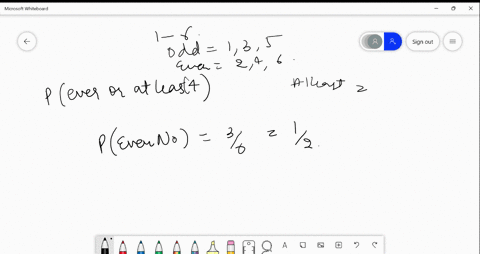 Microsoft Whiteboard
Sign out
1 – 6.
Odd = 1, 3, 5
Even = 2, 4, 6.
P(even or at least 4)
At least =
P(Even No) = 3/6 = 1/2.